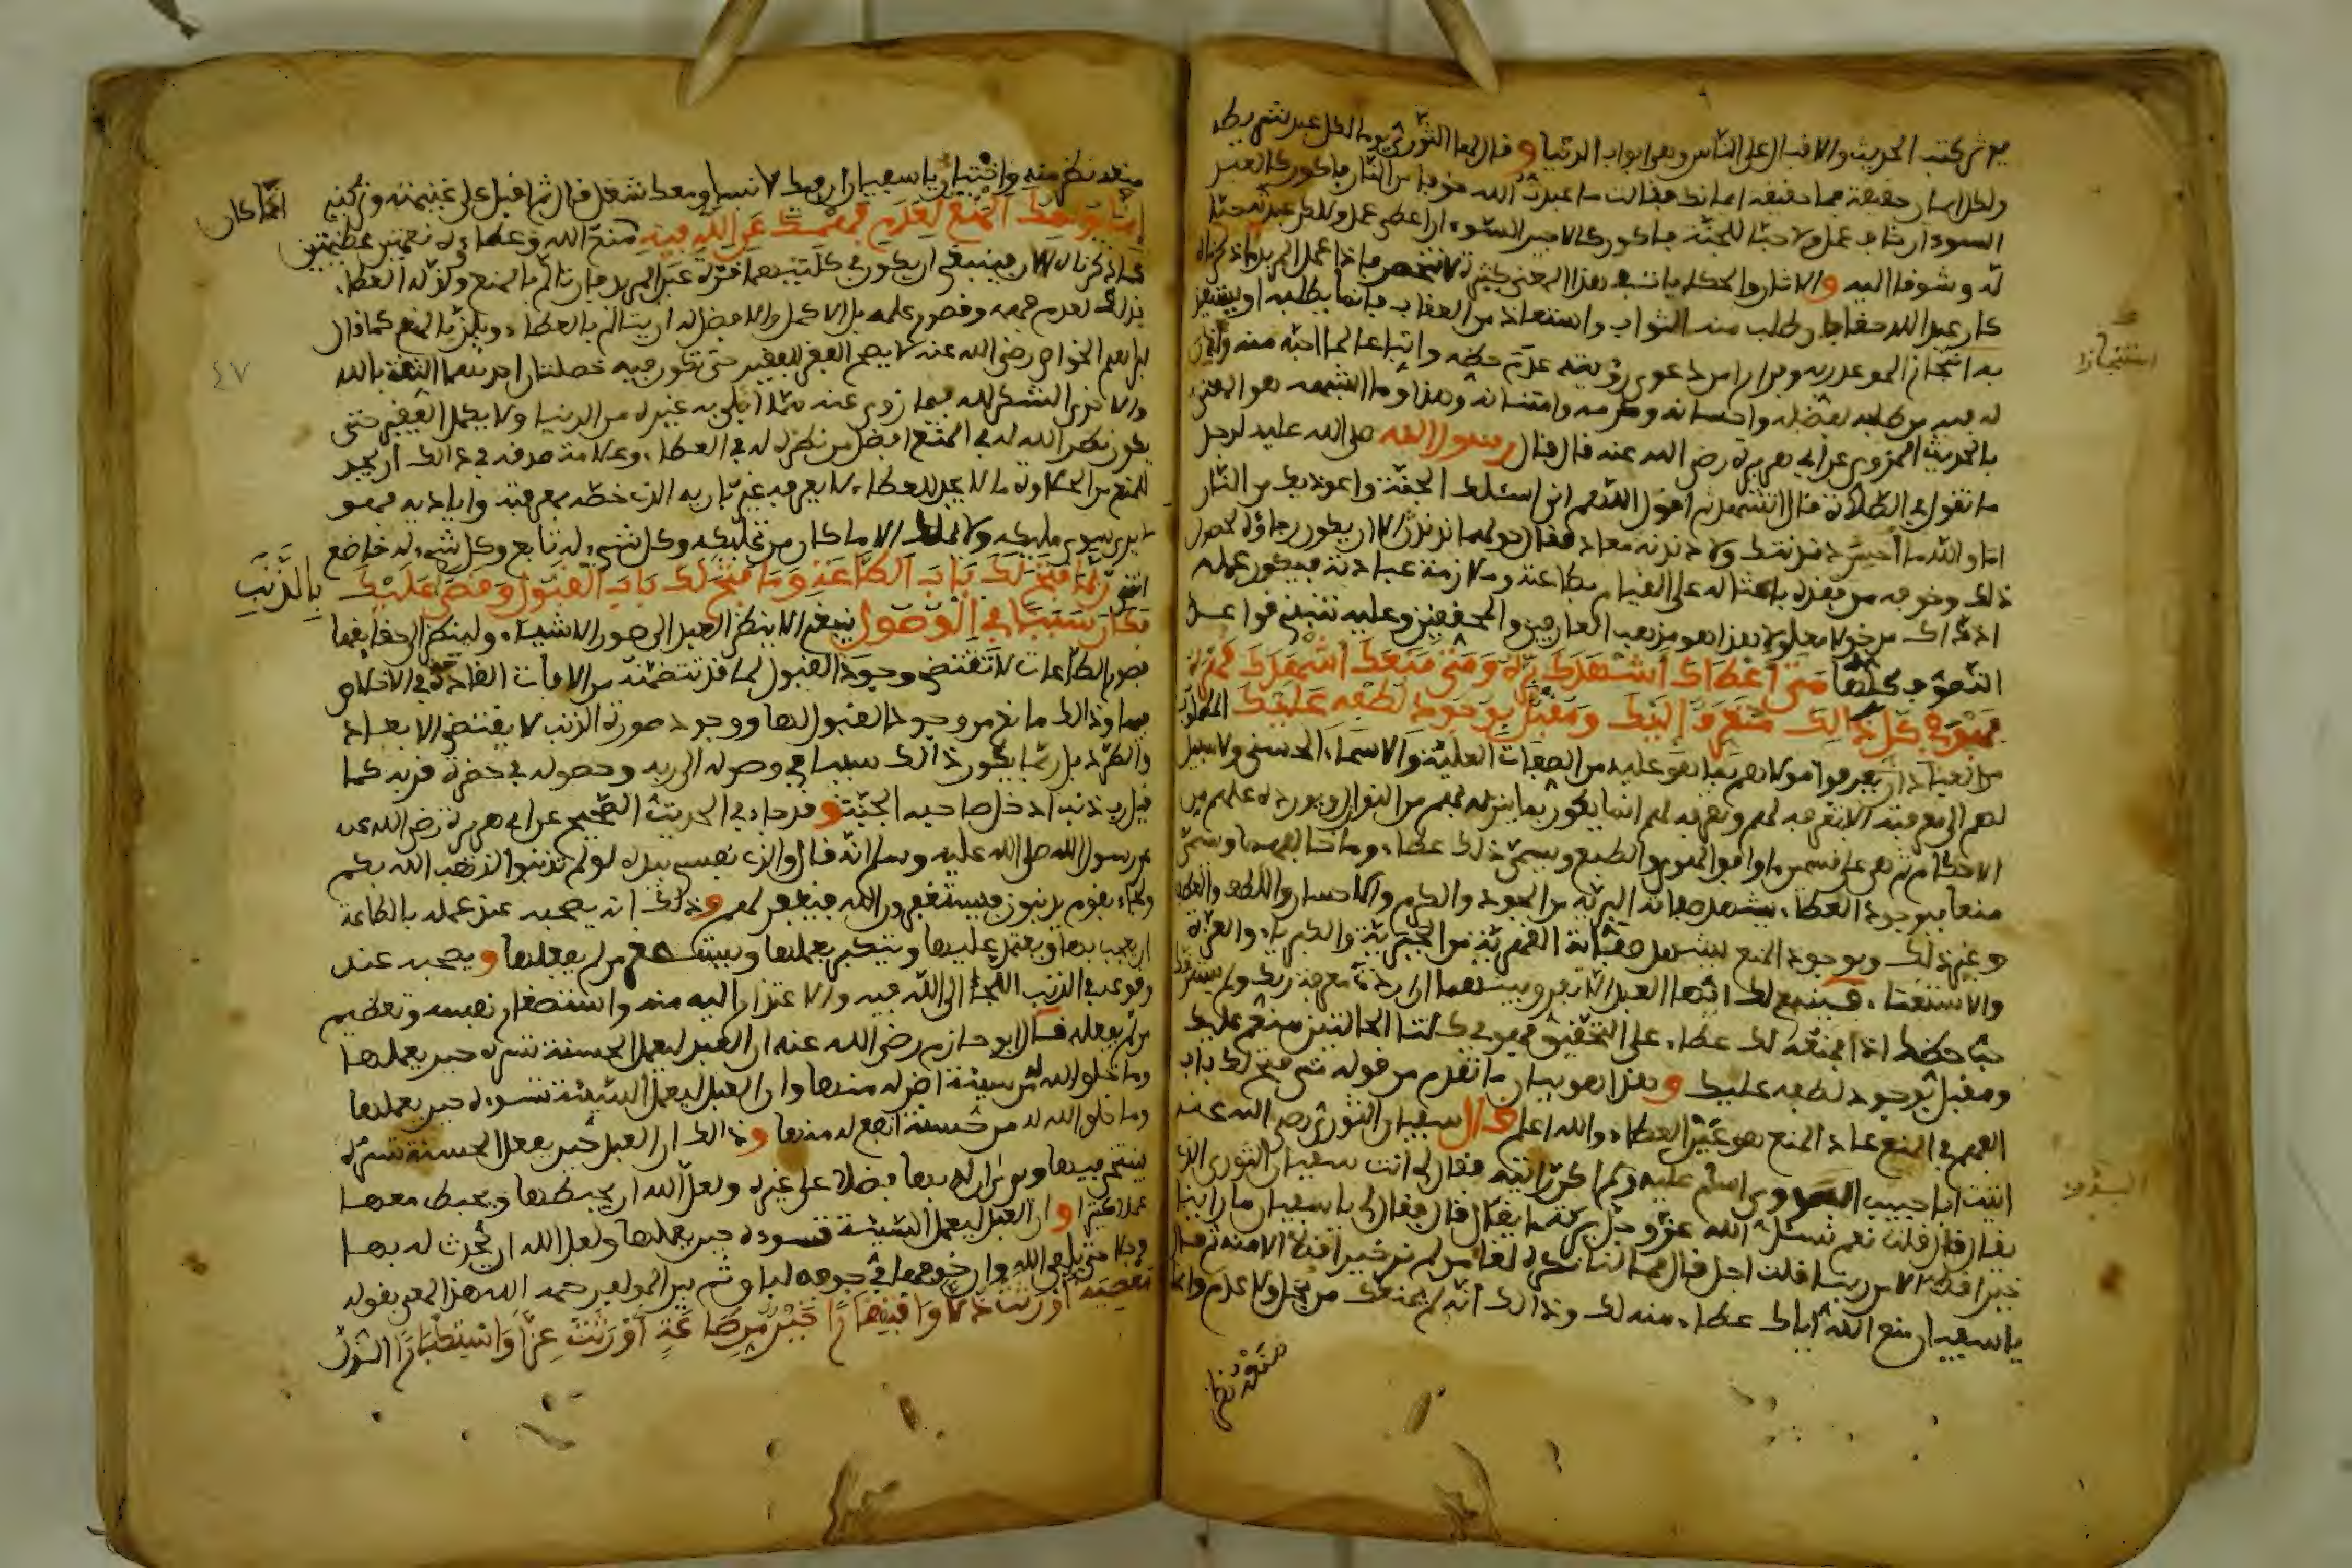 يوثر كتب الحديث والاقبال على الناس وهي ابواب الدنيا وقال لها الثوري يوما لكل عبد شريطة
ولكل ايمان حقيقة فما حقيقة ايمانك فقالت ما عبدت الله خوفا من النار فاكون كالعبد
السوء ان خاف عمل ولا حبا للجنة فاكون كالاجير السوء ان اعطي عمل ولكن عبدته حبا
له وشوقا اليه والاثار والحكايات في هذا المعنى كثيرة لا تنحصر فاذا عمل المريد على ما ذكرناه
كان عبد الله حقا فان طلب منه الثواب واستعاذ من العقاب فانما يطلبه او يستعيذ
به انتجازا لموعد ربه وفرارا من دعوى رؤيته عدم حظه واتباعا لما احبه منه واذن
له فيه من طلبه لفضله واحسانه وكرمه وامتنانه وهذا وما اشبهه هو المعني
بالحديث المروي عن ابي هريرة رضي الله عنه قال قال رسول الله صلى الله عليه لرجل
ما تقول في الصلاة قال اتشهد ثم اقول اللهم اني اسئلك الجنة واعوذ بك من النار
اما والله ما احسن دندنتك ولا دندنة معاذ فقال حولهما ندندن الا ان يكون رجاؤه لحصول
ذلك وخوفه من فقده باعثا له على القيام بطاعة وملازمة عبادته فيكون عمله
اذ ذاك مدخولا معلولا هذا هو مذهب العارفين والمحققين وعليه تنبني قواعد
التصوف كلها متى اعطاك اشهدك بره ومتى منعك اشهدك قهره
فهو في كل ذلك متعرف اليك ومقبل بوجود لطفه عليك المطلوب
من العباد ان يعرفوا مولاهم بما هو عليه من الصفات العلية والاسماء الحسنى ولا سبيل
لهم الى معرفته الا بتعرفه لهم وتعرفه لهم انما يكون بما ينزله لهم من النوازل ويورده عليهم من
الاحكام ثم هي على قسمين ما وافق الهوى والطبع ويسمى ذلك عطاء وما خالفهما وسمي
منعا فبوجود العطاء يشهد صفاته البرية من الجود والكرم والاحسان واللطف والعطف
وغير ذلك وبوجود المنع يشهد صفاته القهرية من الجبرية والكبرياء والعزة
والاستغناء فينبغي لك ايها العبد
حبا حظك اذا المنع لك عطاء على التحقيق فهو في كلتا الحالتين منعم عليك
ومقبل بوجود لطفه عليك وهذا هو بيان ما تقدم من قوله متى فتح لك باب
الفهم في المنع عاد المنع هو عين العطاء والله اعلم قال سفيان الثوري رضي الله عنه
اتيت ابا حبيب البدوي اسلم عليه ولم اكن رايته فقال لي انت سفيان الثوري الذي
يقال قال قلت نعم نسئل الله عز وجل بركة ما يقال قال فقال لي يا سفيان ما راينا
خيرا قط الا من ربنا قلت اجل قال فما لنا نكره لقاء من لم نر خيرا قط الا منه ثم قال
يا سفيان منع الله اياك عطاء منه لك وذلك انه لم يمنعك من بخل ولا عدم وانما
منعه نظر
انتجازا
البدوي
منعه نظر منه واختبار يا سفيان ان فيك لانسا ومعك شغل قال ثم اقبل على غنيمته وتركني
انما يؤلمك المنع لعدم فهمك عن الله فيه منع الله وعطاؤه نعمتين عظيمتين انما كان
كما ذكرناه الان فينبغي ان يكون في كلتيهما قرة عين المريد فان تالم بالمنع ولذ له العطاء
فذلك لعدم فهمه وقصور علمه بل الاكمل والافضل له ان يتالم بالعطاء ويلذ بالمنع كما قال
ابراهيم الخواص رضي الله عنه لا يصح الفقر للفقير حتى تكون فيه خصلتان احدهما الثقة بالله
والاخرى الشكر لله فيما زوي عنه مما ابتلي به غيره من الدنيا ولا يكمل الفقير حتى
يكون نظر الله له في المنع افضل من نظره له في العطاء وعلامة صدقه في ذالك ان يجد
للمنع من الحلاوة ما لا يجد للعطاء لا يعرفه غير باريه الذي خصه بمعرفته واياديه فهو
لا يرى سوى مليكه ولا يملك الا ما كان من تمليكه وكل شيء له تابع وكل شيء له خاضع
انتهى ربما فتح لك باب الطاعة وما فتح لك باب القبول وقضى عليك بالذنب
فكان سببا في الوصول ينبغي الا ينظر العبد الى صور الاشياء ولينظر الى حقايقها
فصور الطاعات لا تقتضي وجود القبول لها لما قد تتضمنه من الافات القادحة في الاخلاص
فيها وذالك مانع من وجود القبول لها ووجود صورة الذنب لا يقتضي الابعاد
والطرد بل ربما يكون ذالك سببا في وصوله الى ربه وحصوله في حضرة قربه كما
قيل رب ذنب ادخل صاحبه الجنة وقد جاء في الحديث الصحيح عن ابي هريرة رضي الله عنه
عن رسول الله صلى الله عليه وسلم انه قال والذي نفسي بيده لو لم تذنبوا لذهب الله بكم
ولجاء بقوم يذنبون فيستغفرون الله فيغفر لهم وذلك انه يصحبه عند عمله بالطاعة
ان يعجب بها ويعتمد عليها ويتكبر بعملها ويستصغر من لم يفعلها ويصحبه عند
وقوعه في الذنب اللجأ الى الله فيه والاعتذار اليه منه واستصغار نفسه وتعظيم
من لم يفعله قال ابو حازم رضي الله عنه ان العبد ليعمل الحسنة تسره حين يعملها
وما خلق الله من سيئة اضر له منها وان العبد ليعمل السيئة تسوءه حين يعملها
وما خلق الله له من حسنة انفع له منها وذالك ان العبد حين يعمل الحسنة تسره
فيتجبر فيها ويرى ان له بها فضلا على غيره ولعل الله ان يحبطها ويحبط معها
عملا كثيرا وان العبد ليعمل السيئة تسوءه حين يعملها ولعل الله ان يحدث له بها
وجلا حتى يلقى الله وان خوفها في جوفه لباق ثم بين المولف رحمه الله هذا المعنى بقوله
معصية اورثت ذلا وافتقارا خير من طاعة اورثت عزا واستكبارا الذل
٤٧